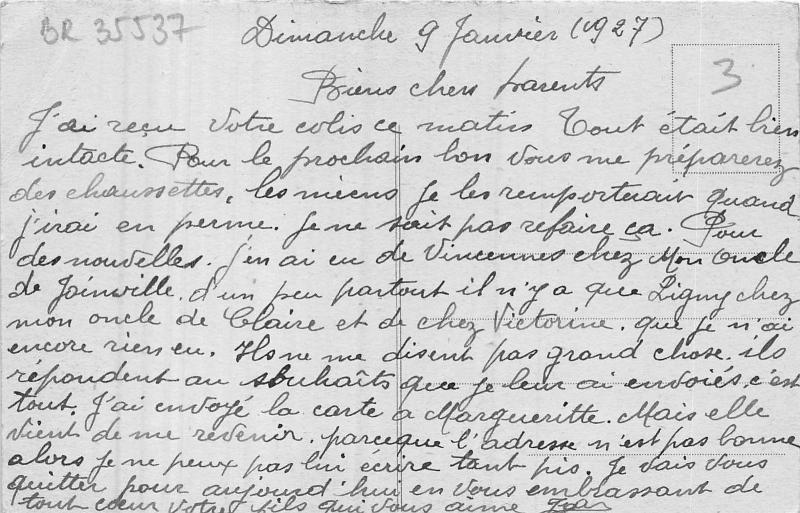 BR 35537
Dimanche 9 Janvier (1927)
3
Biens chers parents
J'ai reçu votre colis ce matin Tout était bien
intacte. Pour le prochain bon vous me préparerez
des chaussettes, les miens je les remporterait quand
j'irai en perme. Je ne sait pas refaire ça. Pour
des nouvelles. J'en ai eu de Vincennes chez Mon Oncle
de Joinville. d'un peu partout il n'y a que Ligny chez
mon oncle de Claire et de chez Victorine. que je n'ai
encore rien eu. Ils ne me disent pas grand chose. ils
répondent au souhaits que je leur ai envoiés, c'est
tout. J'ai envoyé la carte a Margueritte. Mais elle
vient de me revenir. parceque l'adresse n'est pas bonne
alors je ne peux pas lui écrire tant pis. Je vais vous
quitter pour aujourd'hui en vous embrassant de
tout cœur votre fils qui vous aime